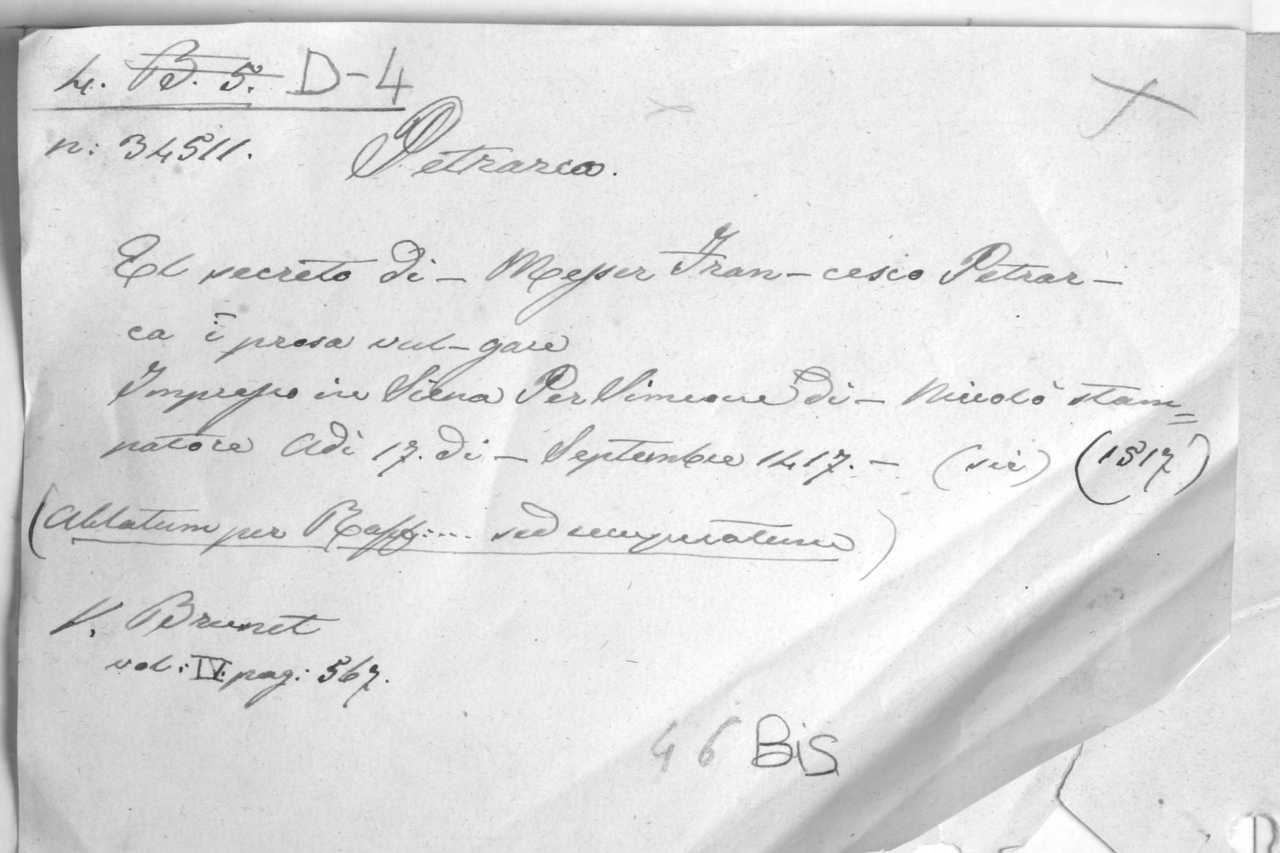 L. B. 5. D-4
n: 34511. Petrarca.
El secreto di - Messer Fran-cesco Petrar-
ca ī prosa vul-gare
Impresso in Siena Per Simione di - Niccolò stam=
patore Adi 17. di - Septembre 1417. - (sic) (1517)
(Ablatum per Raff:... sed recuperatum)
V. Brunet
vol: IV. pag: 567.
46 BiS